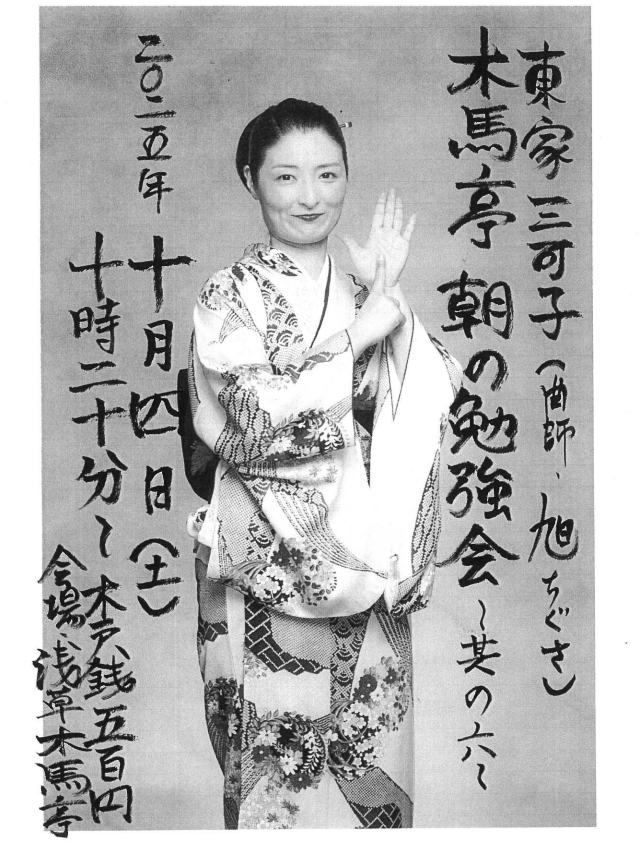 東家三可子（曲師・旭ちぐさ）
木馬亭 朝の勉強会～其の六～
二〇二五年
十月四日（土）
十時二十分～木戸銭五百円
会場・浅草木馬亭